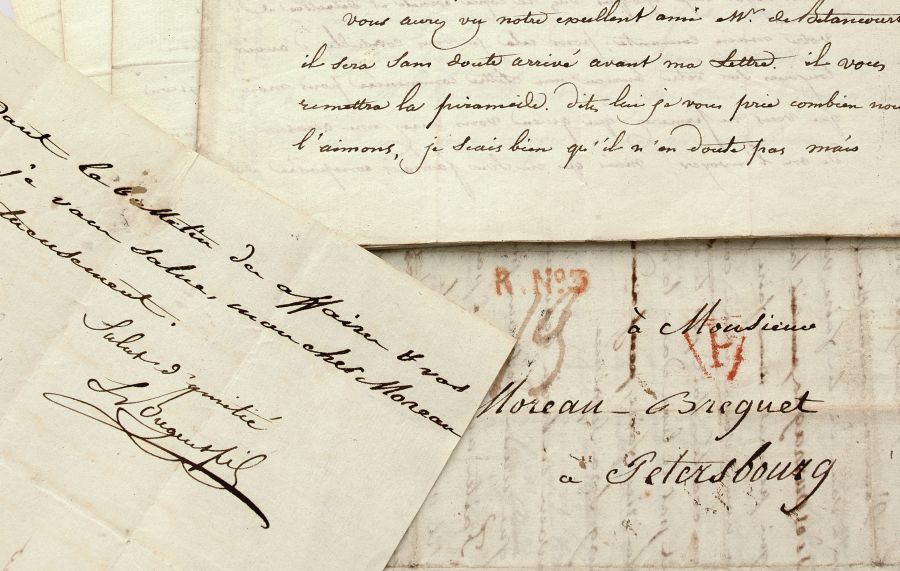 vous aurez vu notre excellent ami Mr. de Betancourt
il sera sans doute arrivé avant ma Lettre. il vous
remettra la piramide. dites lui je vous prie combien nou
l'aimons, je scais bien qu'il n'en doute pas mais
la de affaires & vos
je vous salue, mon cher Moreau
Salut d'amitié
R. Nº3
19
à Monsieur
H
Moreau-Breguet
à Petersbourg